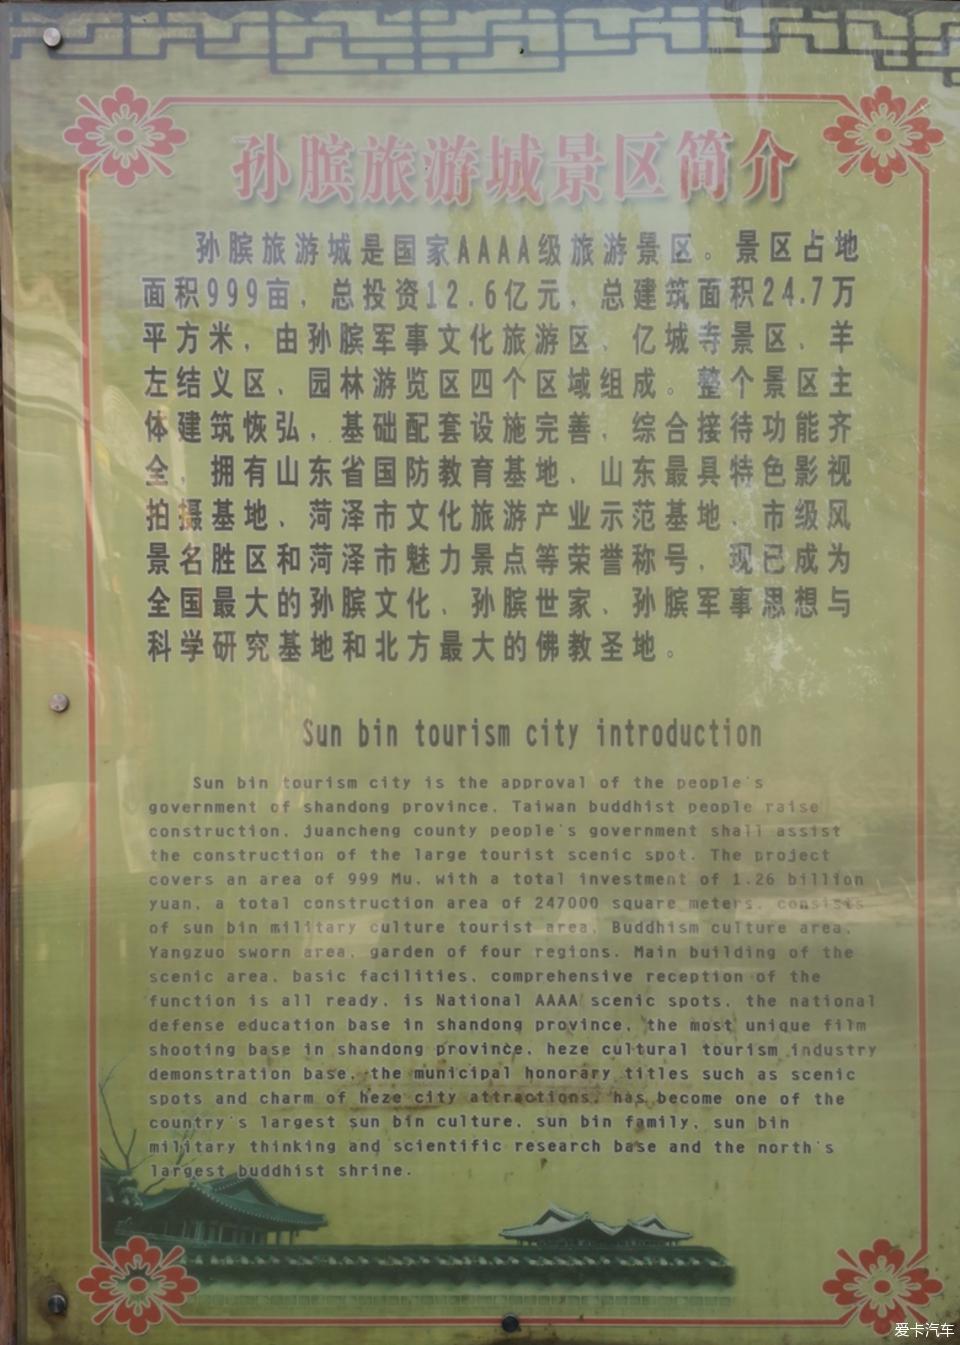 孙膑旅游城景区简介
孙膑旅游城是国家AAAA级旅游景区。景区占地
面积999亩，总投资12.6亿元，总建筑面积24.7万
平方米，由孙膑军事文化旅游区、亿城寺景区、羊
左结义区、园林游览区四个区域组成。整个景区主
体建筑恢弘，基础配套设施完善，综合接待功能齐
全，拥有山东省国防教育基地、山东最具特色影视
拍摄基地、菏泽市文化旅游产业示范基地、市级风
景名胜区和菏泽市魅力景点等荣誉称号，现已成为
全国最大的孙膑文化、孙膑世家、孙膑军事思想与
科学研究基地和北方最大的佛教圣地。
Sun bin tourism city introduction
Sun bin tourism city is the approval of the people's
government of shandong province, Taiwan buddhist people raise
construction, juancheng county people's government shall assist
the construction of the large tourist scenic spot. The project
covers an area of 999 Mu, with a total investment of 1.26 billion
yuan, a total construction area of 247000 square meters, consists
of sun bin military culture tourist area, Buddhism culture area,
Yangzuo sworn area, garden of four regions. Main building of the
scenic area, basic facilities, comprehensive reception of the
function is all ready, is National AAAA scenic spots, the national
defense education base in shandong province, the most unique film
shooting base in shandong province, heze cultural tourism industry
demonstration base, the municipal honorary titles such as scenic
spots and charm of heze city attractions, has become one of the
country's largest sun bin culture, sun bin family, sun bin
military thinking and scientific research base and the north's
largest buddhist shrine.
爱卡汽车